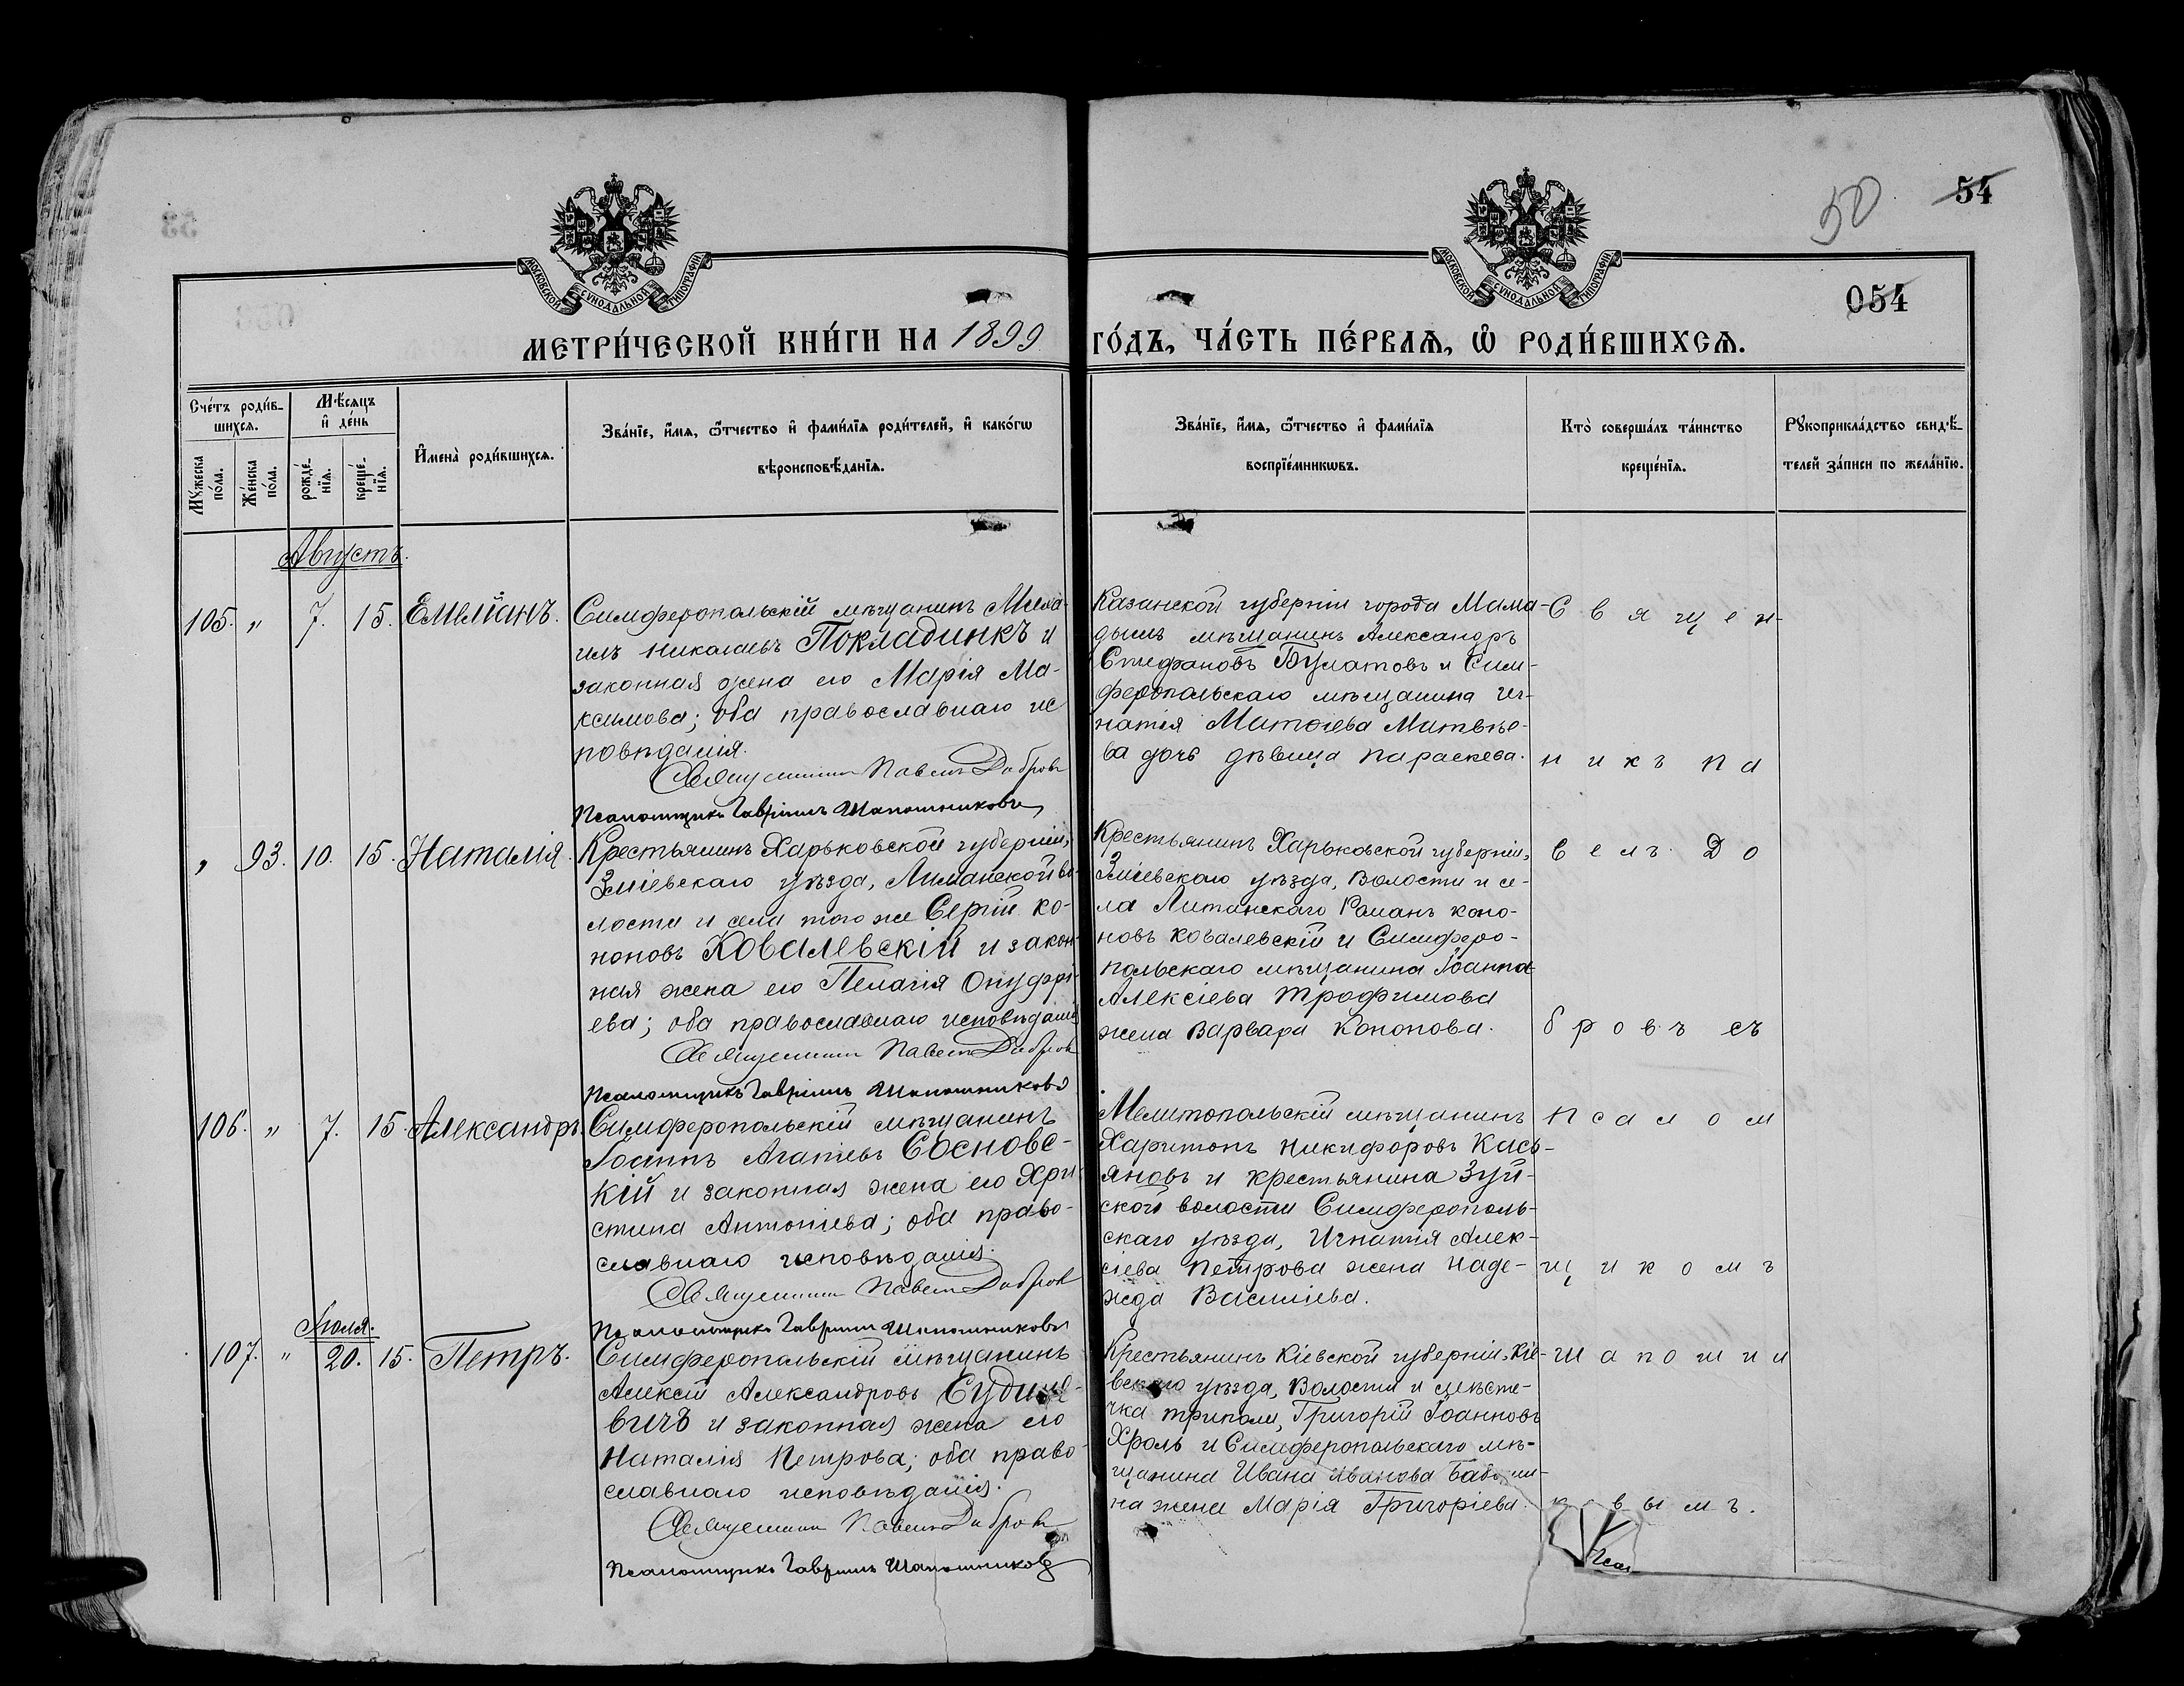 50
54
МОСКОВСКОЙ СѴНОДАЛЬНОЙ ТИПОГРАФІИ
МОСКОВСКОЙ СѴНОДАЛЬНОЙ ТИПОГРАФІИ
054
МЕТРИ́ЧЕСКОЙ КНИ́ГИ НА 1899 ГО́ДЪ, ЧА́СТЬ ПЕ́РВАѦ, Ѡ РОДИ́ВШИХСѦ.
Сче́тъ роди́в-
шихсѧ.
Мѣ́сѧцъ
и҆ де́нь
Мꙋ́жеска
по́ла.
Же́нска
по́ла.
рожде́-
нїѧ.
креще́-
нїѧ.
И҆мена̀ роди́вшихсѧ.
Зва́нїе, и҆́мѧ, ѻ҆́тчество и҆ фами́лїѧ роди́телей, и҆ како́гѡ
вѣроисповѣ́данїѧ.
Зва́нїе, и҆́мѧ, ѻ҆́тчество и҆ фами́лїѧ
воспрїе́мникѡвъ.
Кто̀ соверша́лъ та́инство
креще́нїѧ.
Рꙋкоприкла́дство свидѣ́-
телей за́писи по жела́нїю.
Августъ.
105. " 7. 15. Емеліанъ.
Симферопольскій мѣщанинъ Миха-
илъ Николаевъ Покладинкъ и
законная жена его Марія Ма-
ксимова; оба православнаго ис
повѣданія.
Священникъ Павелъ Добровъ
Псаломщикъ Гавріилъ Шапошниковъ
Казанской губерніи города Мама-
дышъ мѣщанинъ Александръ
Епифановъ Булатовъ и Сим-
феропольскаго мѣщанина Иг-
натія Матвѣе-
ва дочь дѣвица Параскева.
Священ-
никъ Па
" 93. 10. 15. Наталія.
Крестьянинъ Харьковской губерніи,
Зміевскаго уѣзда, Лиманской во-
лости и села того же Сергій Ко-
ноновъ Ковалевскій и закон-
ная жена его Пелагія Онуфрі-
ева; оба православнаго исповѣданія
Священникъ Павелъ Добровъ
Псаломщикъ Гавріилъ Шапошниковъ
Крестьянинъ Харьковской губерніи,
Зміевскаго уѣзда, Волости и се-
ла Лиманскаго Романъ Коно-
новъ Ковалевскій и Симферо-
польскаго мѣщанина Іоанна
Алексіева Трофимова
жена Варвара Кононова.
велъ До
бровъ съ
106. " 7. 15. Александръ.
Симферопольскій мѣщанинъ
Іоаннъ Сосновс-
кій и законная жена его Хри-
стина Антоніева; оба право-
славнаго исповѣданія.
Священникъ Павелъ Добровъ
Псаломщикъ Гавріилъ Шапошниковъ
Мелитопольскій мѣщанинъ
Харитонъ Никифоровъ Кась-
яновъ и крестьянина Зуй-
ской волости Симферополь-
скаго уѣзда, Игнатія Алек-
сіева Петрова жена Наде-
жда Василіева.
псалом
щикомъ
Іюля.
107. " 20. 15. Петръ.
Симферопольскій мѣщанинъ
Алексій Александровъ
вичъ и законная жена его
Наталія Петрова; оба право-
славнаго исповѣданія.
Священникъ Павелъ Добровъ
Псаломщикъ Гавріилъ Шапошниковъ
Крестьянинъ Кіевской губерніи, Кіе-
вскаго уѣзда, Волости и мѣсте-
чка Триполи, Григорій Іоанновъ
Хроль и Симферопольскаго мѣ-
щанина Ивана Иванова
на жена Марія Григоріева.
Шапошни
ковымъ.
Псал